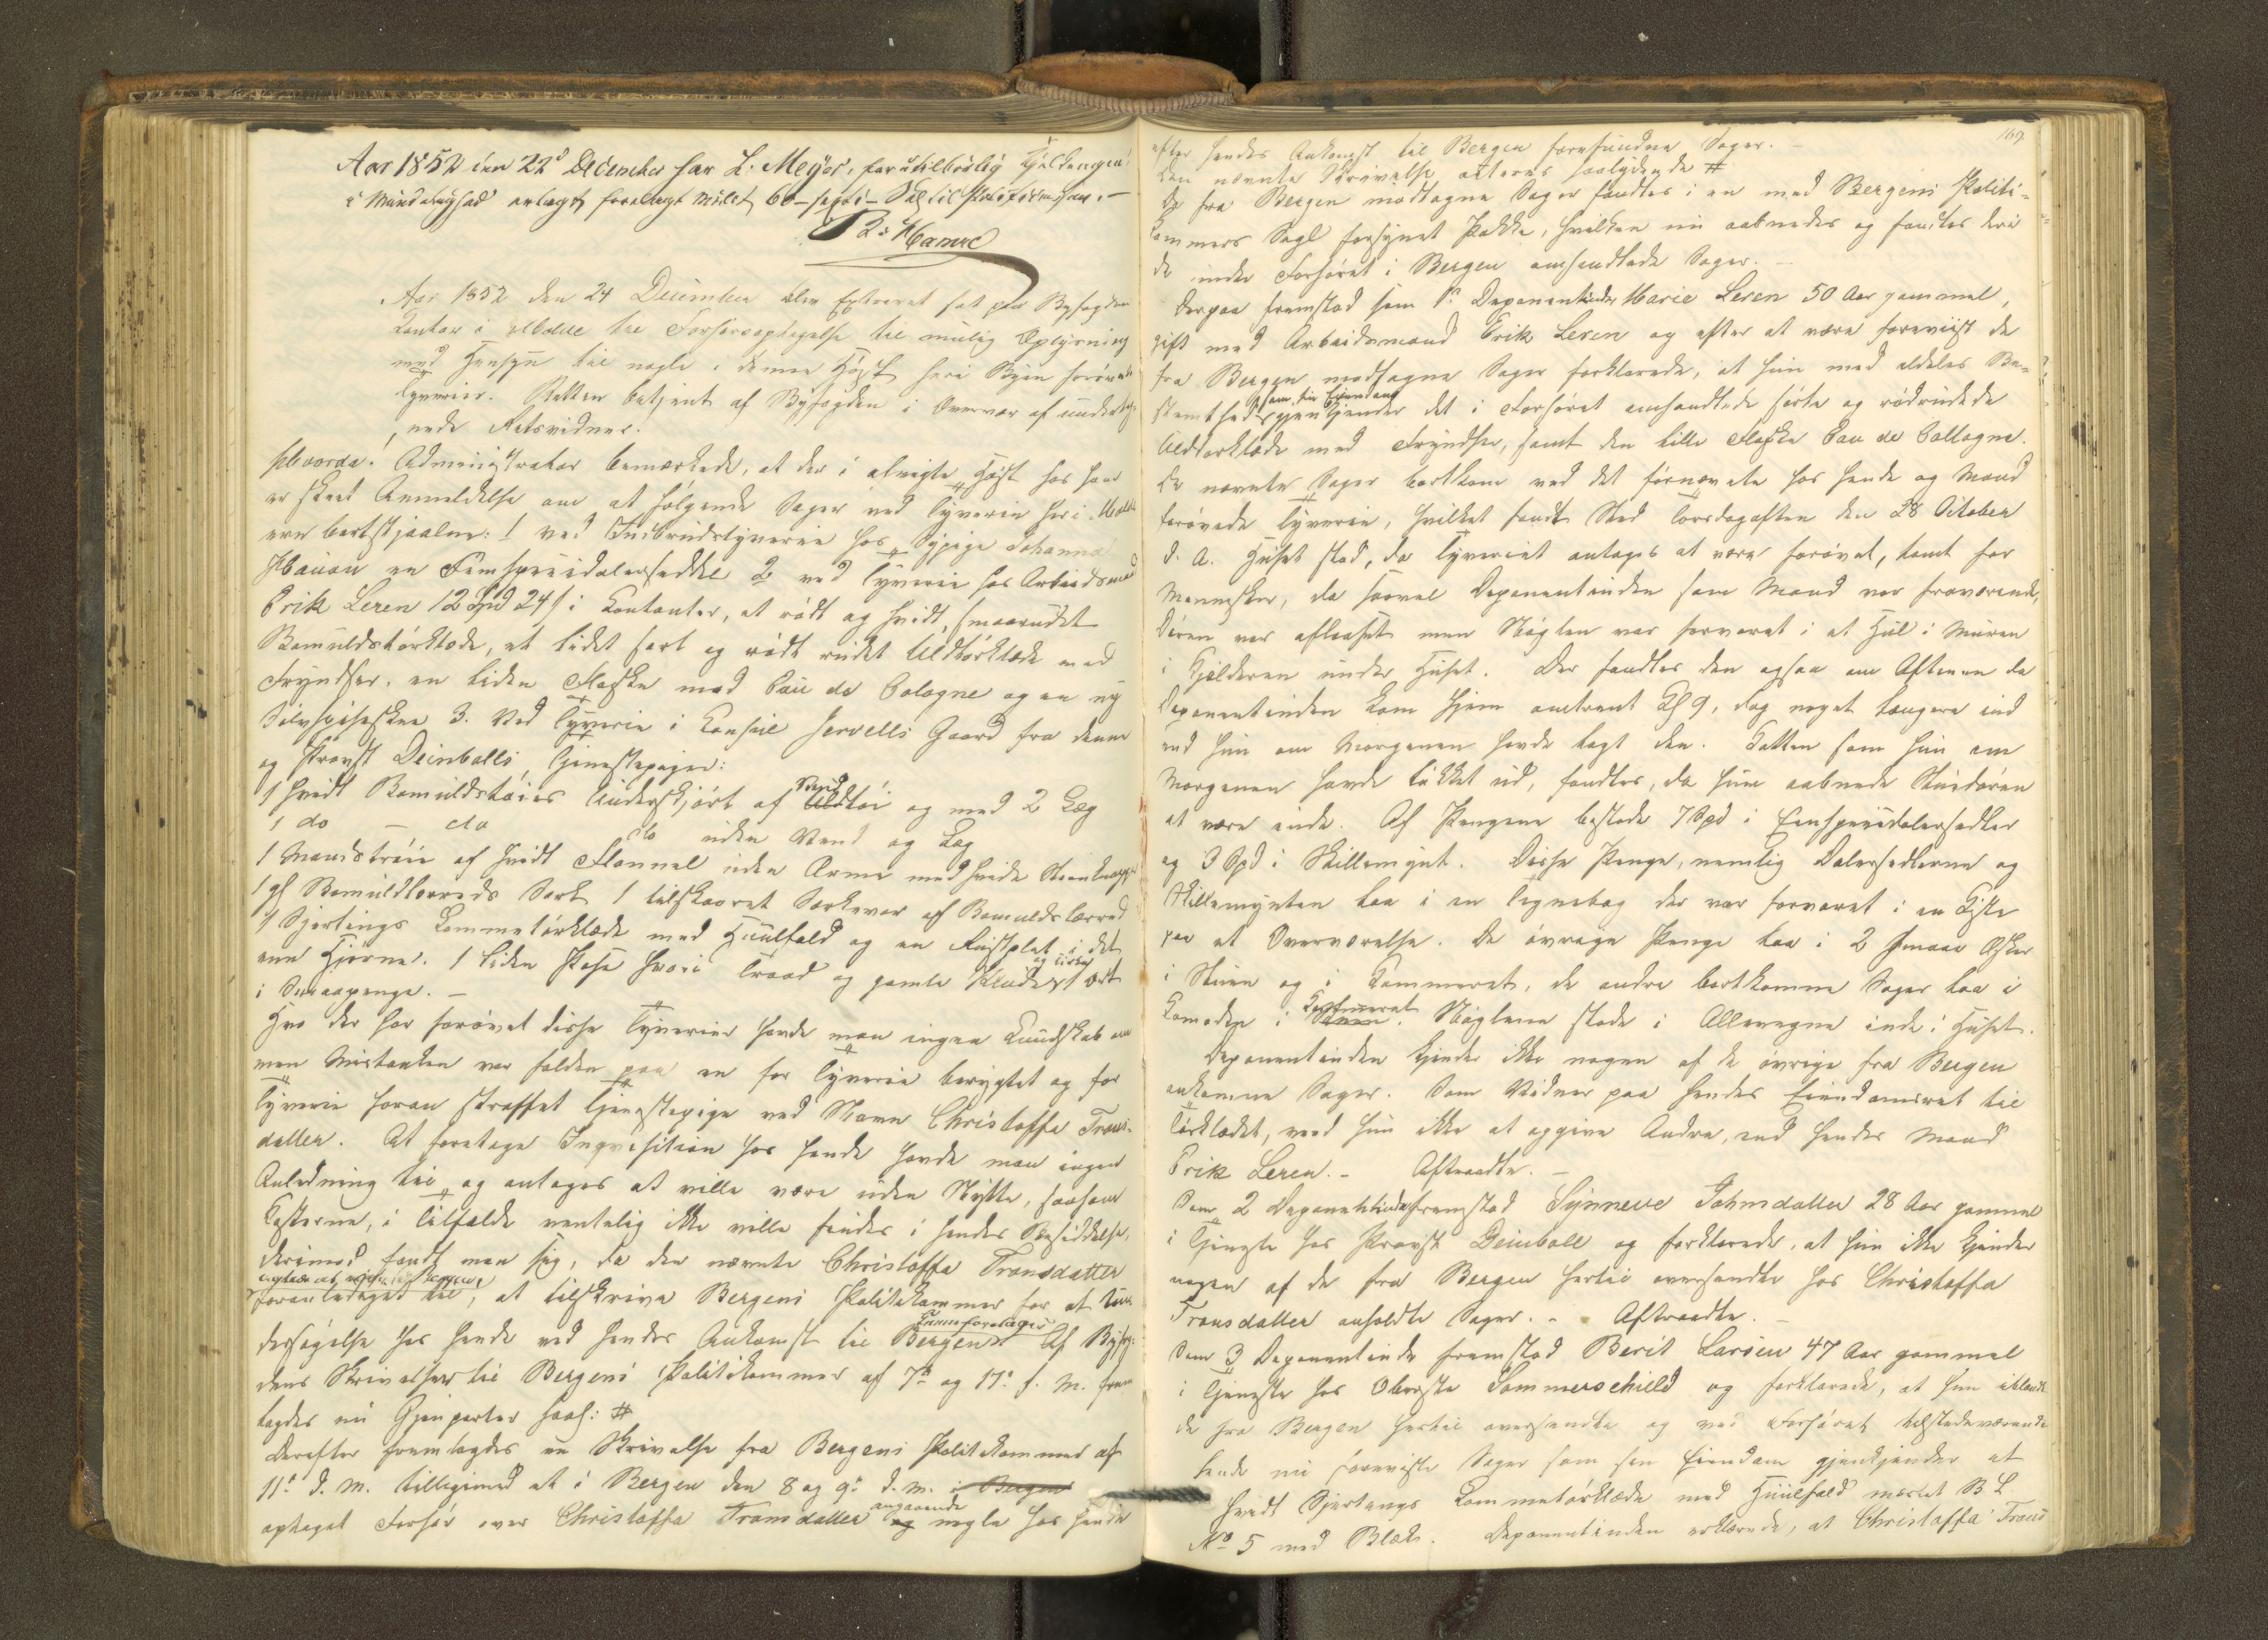 Aar 1852 den 22d December har L. Meyer, for utilbørlig
i vedtaget forelagt Mulct 60 – – Skl til Politikassen. –
Aar 1852 den 24 December blev Extraret sat paa Byfogdens
Contor i Molde til Forhørsoptagelse til mulig Oplysning
med Hensyn til nogle i denne Høst her i Byen forøvede
Tyverier. Retten betjent af Byfogden i Overvær af undertegnede
Retsvidner.
Hvorda! Administrator bemærkede, at der i afvigte Høst hos ham
er skeet Anmeldelse om at følgende Sager ved Tyverie her i Molde
ere bortstjaalne: 1 ved Indbrudstyverie hos Sypige Johanna
en Femspeciedalerseddel 2 ved Tyverie hos Arbeidsmand
Erik Leren 12 Spd 24 s i Contanter, et rødt og hvidt, smaarudet
Bomuldstørklæde, et lidet sort og rødt rudet Uldtørklæde med
Fryndser, en liden Flaske med Eau de Cologne og en ny
Sølvspiseskee 3. Ved Tyverie i Consul Jervells Gaard fra denne
og Provst Deinbolls Tjenestepiger:
1 hvidt Bomuldstøies Underskjørt af Uldtøi og med 2 Læg
1 do – do do uden Vend og Læg
1 Mandstrøie af hvidt Flannel uden Arme med hvide
1 gl Bomuldlærreds Særk 1 tilskaaret Særkevar af Bomuldslærred
1 Sjertings Lommetørklæde med Huulfald og en Rustplet i det
ene Hjørne. 1 liden Pose hvori Traad og gamle Klude og 1 ort
i Smaapenge. –
Hvo der har forøvet disse Tyverier havde man ingen Kundskab om
men Mistanken var falden paa en for Tyverie berygtet og for
Tyverie foran straffet Tjenestepige ved Navn Christoffa Trons-
datter. At foretage Inqvisition hos hende havde man ingen
Anledning til og antages at ville være uden Nytte, saasom
Kosterne, i Tilfælde ventelig ikke ville findes i hendes Besiddelse,
derimod fandt man sig, da den nævnte Christoffa Tronsdatter
foranlediget til, at tilskrive Bergens Politikammer for at Un-
dersøgelse hos hende ved hendes Ankomst til Bergen kunne foretages. Af Byfog-
dens Skrivelser til Bergens Politikammer af 7d og 17d f. M. frem-
lagdes nu Gjenparter saal: #
Derefter fremlagdes en Skrivelse fra Bergens Politikammer af
11d d. M. tilligemed et i Bergen den 8 og 9d d. M. i Bergen
optaget Forhør over Christoffa Tronsdatter angaaende nogle hos hende
169
efter hendes Ankomst til Bergen forefundne Sager. –
Den nævnte Skrivelse acteres saalydende #
De fra Bergen modtagne Sager fandtes i en med Bergens Politi-
kammers Segl forsynet Pakke, hvilken nu aabnedes og fandtes deri
de under Forhøret i Bergen omhandlede Sager. –
Derpaa fremstod som 1ste Deponentinde Marie Leren 50 Aar gammel,
gift med Arbeidsmand Erik Leren og efter at være foreviist de
fra Bergen modtagne Sager forklarede, at hun med aldeles Be-
stemthed som sin Eiendom gjenkjender det i Forhøret omhandlede sorte og rødrudede
Uldtørklæde med Fryndser, samt den lille Flaske Eau de Collogne.
De nævnte Sager bortkom ved det førnævnte hos hende og Mand
forøvede Tyverie, hvilket fandt Sted Torsdagaften den 28 October
d. A. Huset stod, da Tyveriet antages at være forøvet, tomt for
Mennesker, da saavel Deponentinden som Mand var fraværende,
Døren var aflaaset men Nøglen var forvaret i et Hul i Muren
i Kjelderen under Huset. Der fandtes den ogsaa om Aftenen da
Deponentinden kom hjem omtrent Kl 9, dog noget længere ind
end hun om Morgenen havde lagt den. Katten som hun om
Morgenen havde lukket ud, fandtes, da hun aabnede Stuedøren
at være inde. Af Pengene bestode 7 Spd i Eenspeciedalersedler
og 3 Spd i Skillemynt. Disse Penge, nemlig Dalersedlerne og
Skillemynten laa i en Tegnebog der var forvaret i en Kiste
paa et Overværelse. De øvrige Penge laa i 2 smaae Æsker
i Stuen og i Kammeret, de andre bortkomne Sager laa i
Komoden i Kammeret. Nøglene stode i Allevegne inde i Huset.
Deponentinden kjender ikke nogen af de øvrige fra Bergen
ankomne Sager. Som Vidner paa hendes Eiendomsret til
Tørklædet, veed hun ikke at opgive Andre, end hendes Mand
Erik Leren. – Aftraadte. –
Som 2 Deponentinde fremstod Synneve Johnsdatter 28 Aar gammel
i Tjeneste hos Provst Deinboll og forklarede, at hun ikke kjender
nogen af de fra Bergen hertil oversendte hos Christoffa
Tronsdatter anholdte Sager. – Aftraadte. –
Som 3 Deponentinde fremstod Berit Larsen 47 Aar gammel
i Tjeneste hos Oberste Sommerschield og forklarede, at hun iblandt
de fra Bergen hertil oversendte og ved Forhøret tilstedeværende
hende nu foreviste Sager som sin Eiendom gjenkjender et
hvidt Sjertings Lommetørklæde med Huulfald mærket B L
No 5 med Blæk. Deponentinden erklærede, at Christoffa Trons